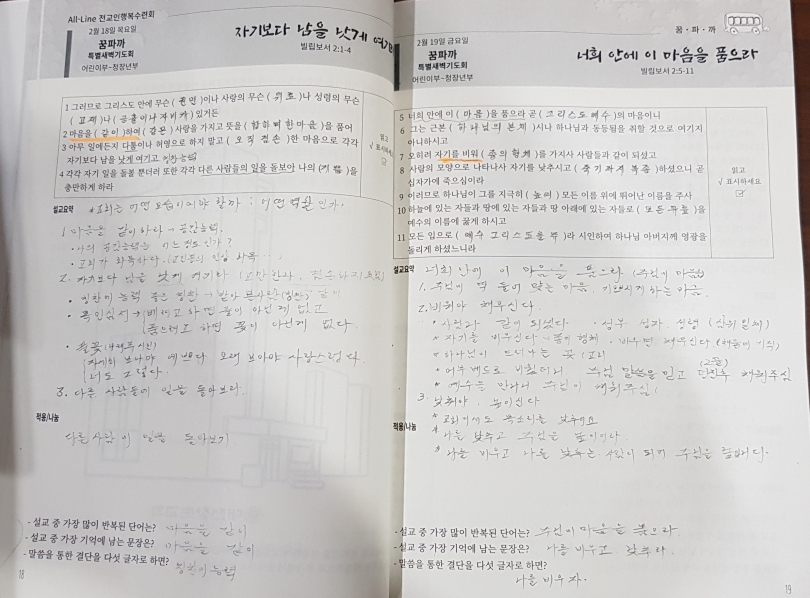 All-Line 전교인행복수련회
2월 18일 목요일
꿈파까
특별새벽기도회
어린이부~청장년부
자기보다 남을 낫게 여기
빌립보서 2:1-4
1 그러므로 그리스도 안에 무슨 ( 권면 )이나 사랑의 무슨 ( 위로 )나 성령의 무슨
( 교제 )나 ( 긍휼이나 자비가 ) 있거든
2 마음을 ( 같이 )하여 ( 같은 ) 사랑을 가지고 뜻을 ( 합하며 한마음 )을 품어
3 아무 일에든지 다툼이나 허영으로 하지 말고 ( 오직 겸손 )한 마음으로 각각
자기보다 남을 낫게 여기고
4 각각 자기 일을 돌볼 뿐더러 또한 각각 다른 사람들의 일을 돌보아 나의 ( 기쁨 )을
충만하게 하라
읽고
√ 표시하
설교요약
* 교회는 어떤 모습이어야 할까 : 어떤 역할인가.
1. 마음을 같이하라 → 공감능력.
• 나의 공감능력은 어느정도인가?
• 교회가 화목하다.
2. 자기보다 남을 낫게 여기라
• 칭찬이 능력
비판하고 하면 들이 아닌게 없고
품으려고 하면 꽃이 아닌게 없다.
• 풀꽃
자세히 보아야 예쁘다 오래 보아야 사랑스럽다.
너도 그렇다.
3. 다른 사람들에 일을 돌아보라.
적용/나눔
다른 사람의 일을 돌아보기
- 설교 중 가장 많이 반복된 단어는? 마음을 같이
- 설교 중 가장 기억에 남는 문장은? 마음을 같이
- 말씀을 통한 결단을 다섯 글자로 하면? 칭찬이 능력
18
꿈·파·까
2월 19일 금요일
꿈파까
특별새벽기도회
어린이부~청장년부
너희 안에 이 마음을 품으라
빌립보서 2:5-11
5 너희 안에 이 ( 마음 )을 품으라 곧 ( 그리스도 예수 )의 마음이니
6 그는 근본 ( 하나님의 본체 )시나 하나님과 동등됨을 취할 것으로 여기지
아니하시고
7 오히려 자기를 비워 ( 종의 형체 )를 가지사 사람들과 같이 되셨고
8 사람의 모양으로 나타나사 자기를 낮추시고 ( 죽기까지 복종 )하셨으니 곧
십자가에 죽으심이라
9 이러므로 하나님이 그를 지극히 ( 높여 ) 모든 이름 위에 뛰어난 이름을 주사
10 하늘에 있는 자들과 땅에 있는 자들과 땅 아래에 있는 자들로 ( 모든 무릎 )을
예수의 이름에 꿇게 하시고
11 모든 입으로 ( 예수 그리스도를 주 )라 시인하여 하나님 아버지께 영광을
돌리게 하셨느니라
읽고
√ 표시하세요
설교요약
너희 안에 이 마음을 품으라 (주님이 마음)
1. 주님이 맘에 맞는 마음. 기쁘시게 하는 마음.
2. 비워야 채우신다.
• 사람과 같이 되셨다. • 성부 성자 성령 (삼위일체)
* 자기를 비우신다 → 종의 형체 • 비우면 채우신다
* 하나님이 드러나는 곳 (교회)
* 예수를 만나서 주님이 채워주심!
3. 낮춰야, 높이신다
* 교회에서도 목소리를 낮추어요
적용/나눔
* 나를 낮추고 주님은 높이어라.
* 나를 비우고 나를 낮추는 사람이 되어 주님을
- 설교 중 가장 많이 반복된 단어는? 주님이 마음을 품으라
- 설교 중 가장 기억에 남는 문장은? 나를 비우고 낮추라.
- 말씀을 통한 결단을 다섯 글자로 하면?
나를 비우자.
19